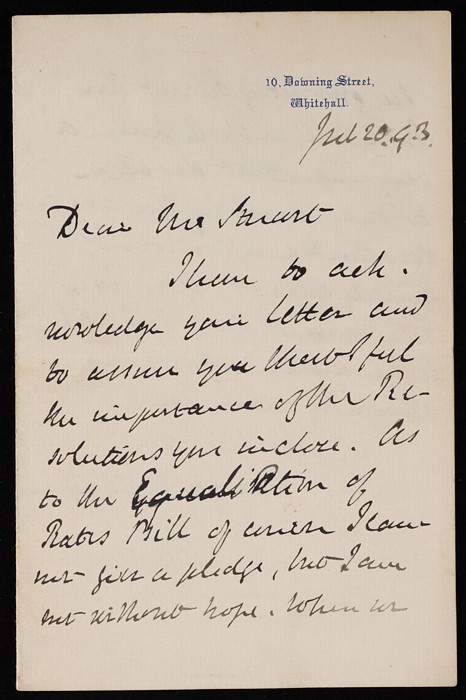 10, Downing Street,
Whitehall.
Feb 20. 93.
Dear Mr Stuart
I have to ack-
nowledge your letter and
to assure you that I feel
the importance of the Re-
solutions you inclose. As
to the Equalisation of
Rates Bill of course I can-
not give a pledge, but I am
not without hope. When we